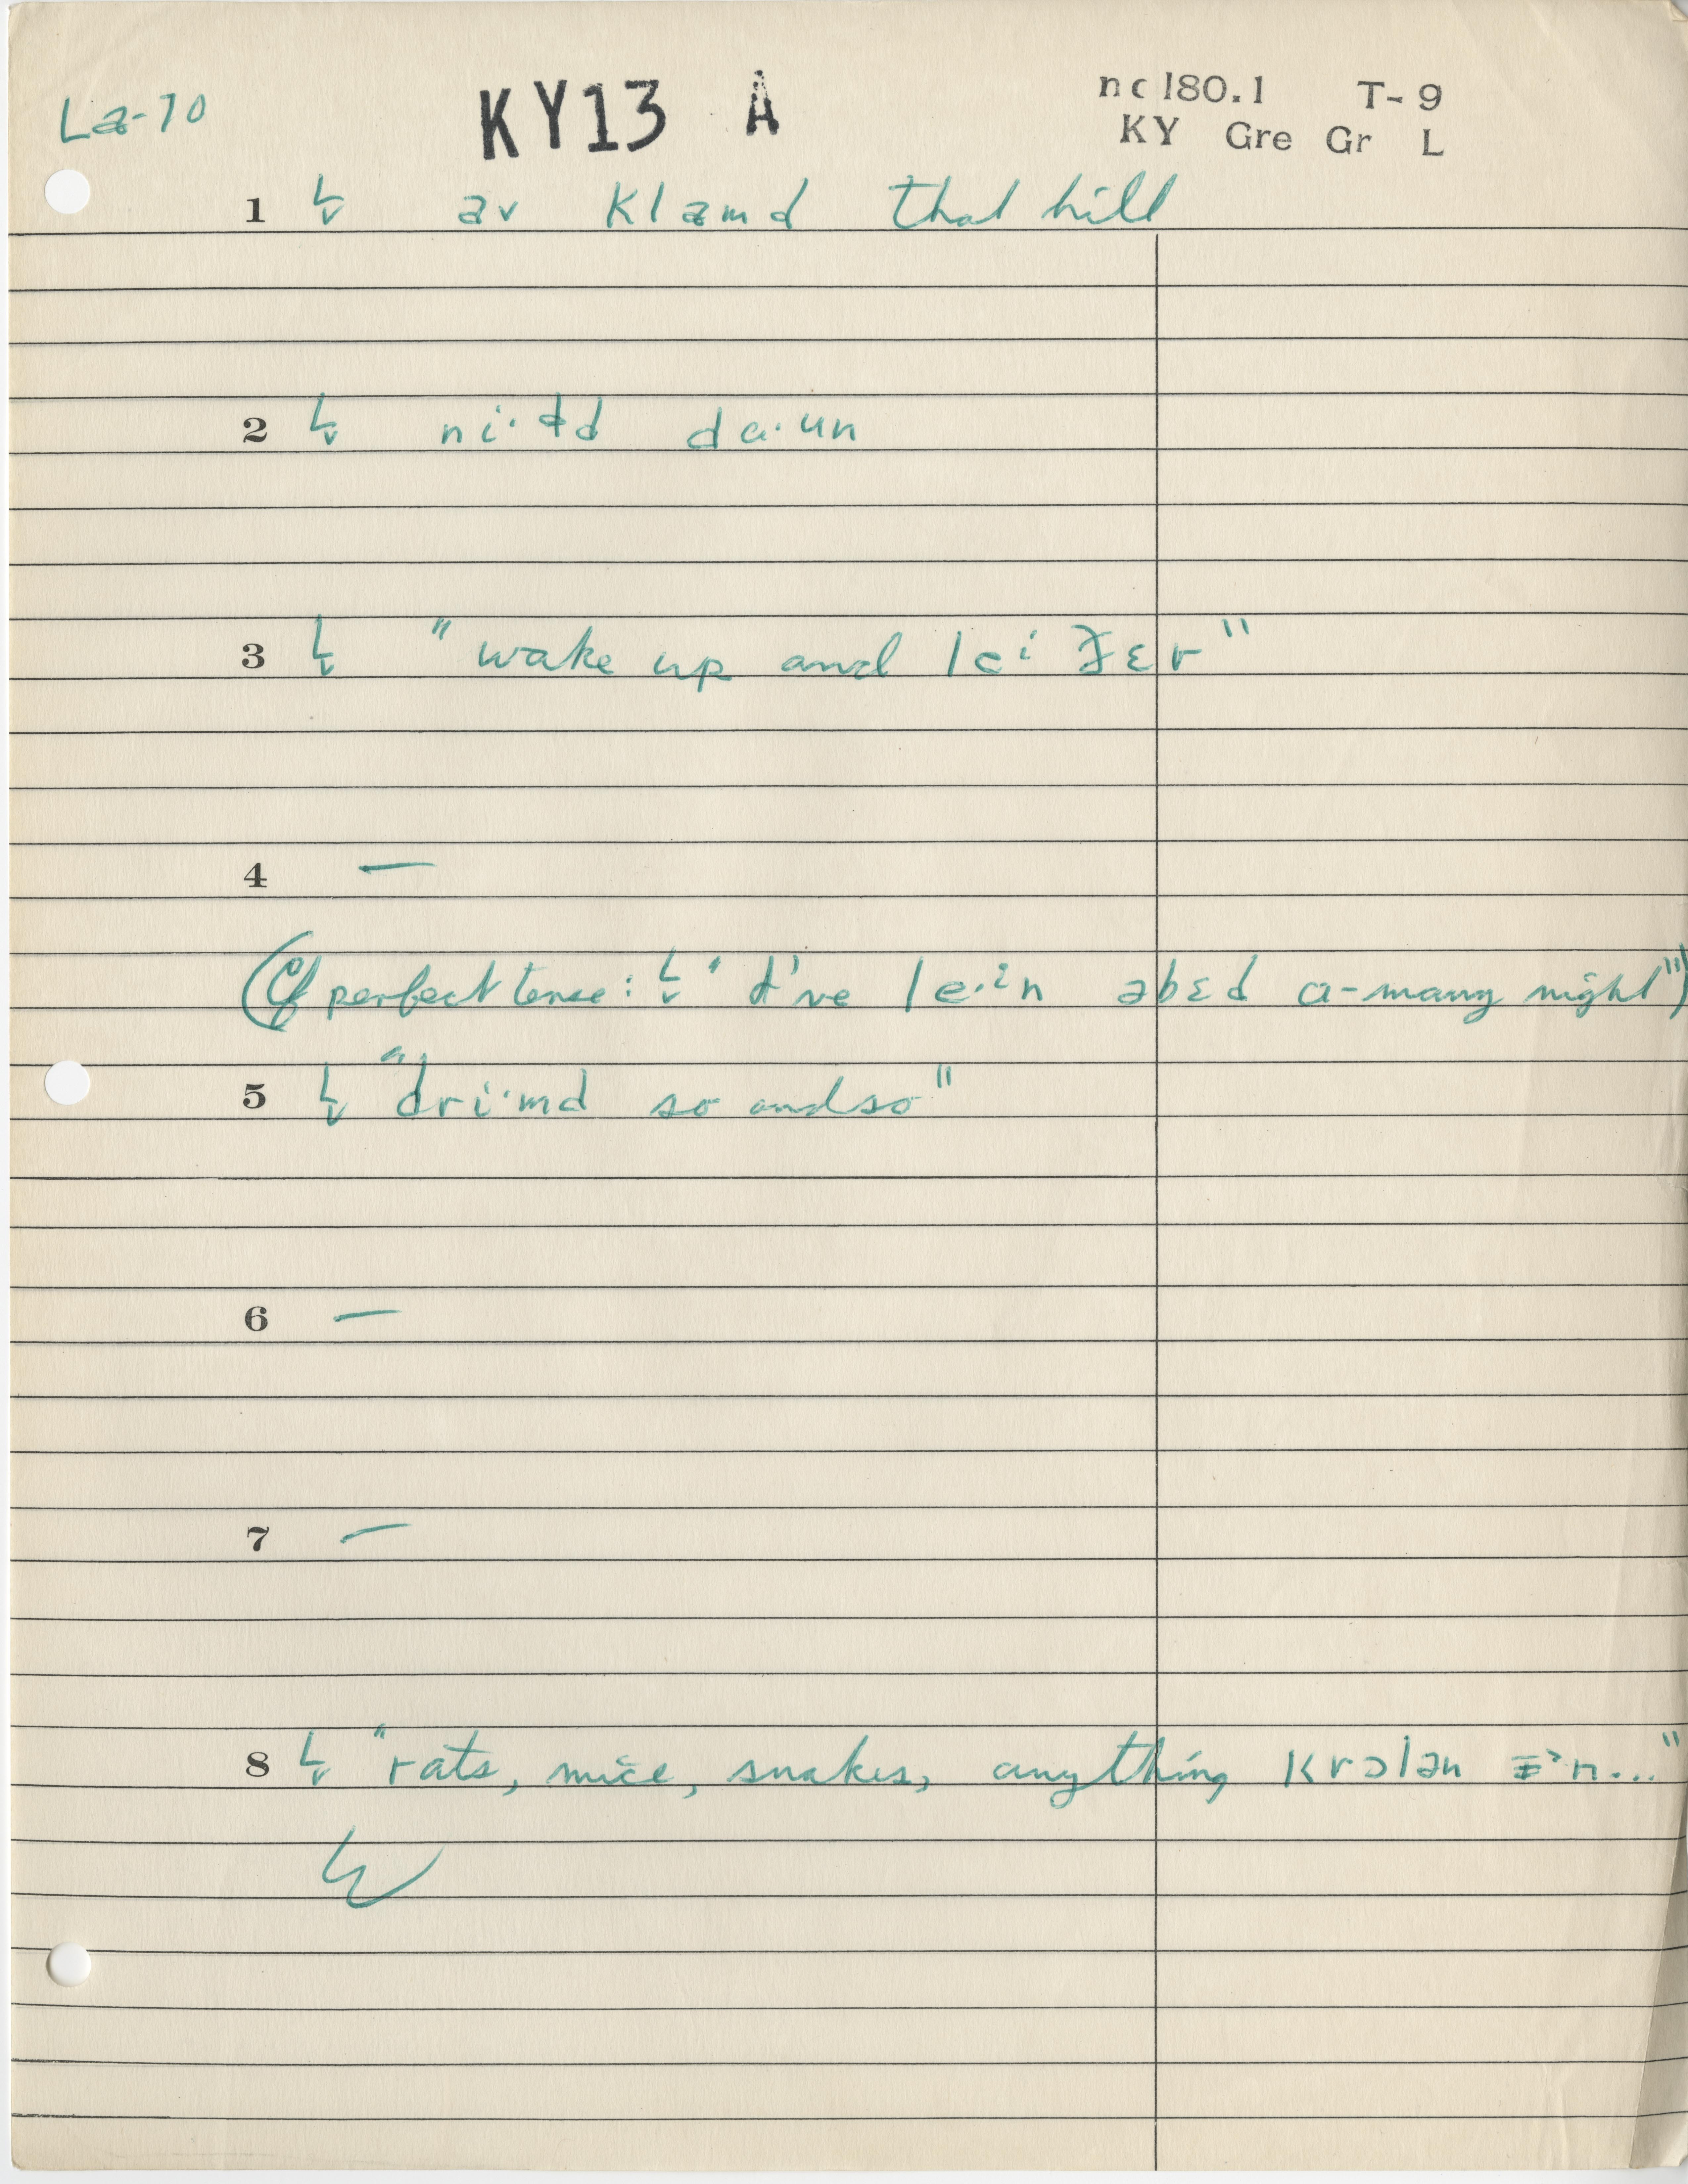 La-70 KY13 A nc 180.1 T-9
KY Gre Gr L
1 av klamd that hill
2 ni·ɫd da·un
3 "wake up and lei ðɛr"
4 —
(Cf perfect tense: "I've le·in əbɛd a-many night")
5 "dri·md so and so"
6 —
7 —
8 "rats, mice, snakes, anything krɔlən n..."